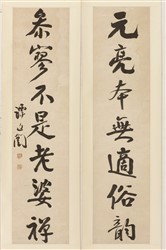 元亮本無適俗韵
參寥不是老婆禪
譚延闓